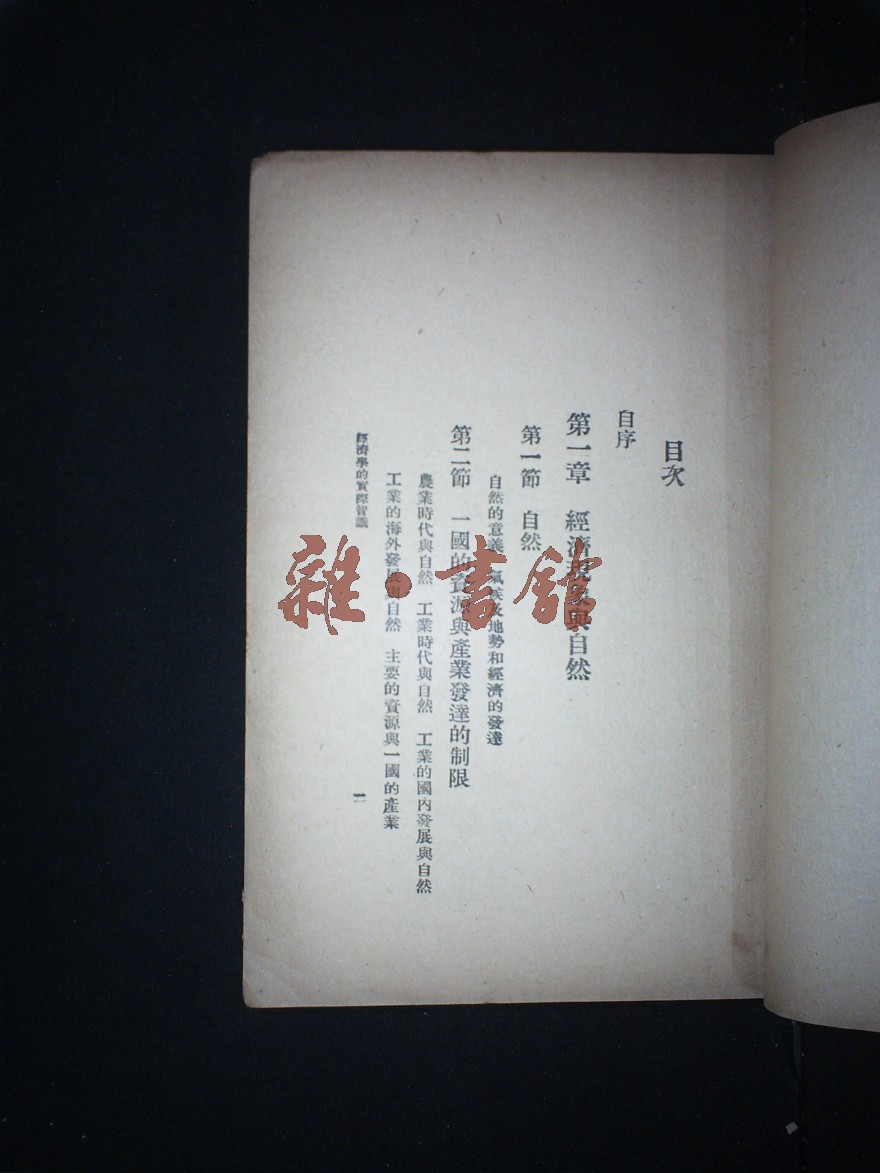 目次
自序
第一章 經濟現象與自然
第一節 自然
自然的意義 氣候及地勢和經濟的發達
第二節 一國的資源與產業發達的制限
農業時代與自然 工業時代與自然 工業的國內發展與自然
工業的海外發展與自然 主要的資源與一國的產業
經濟學的實際智識
一
雜·書館